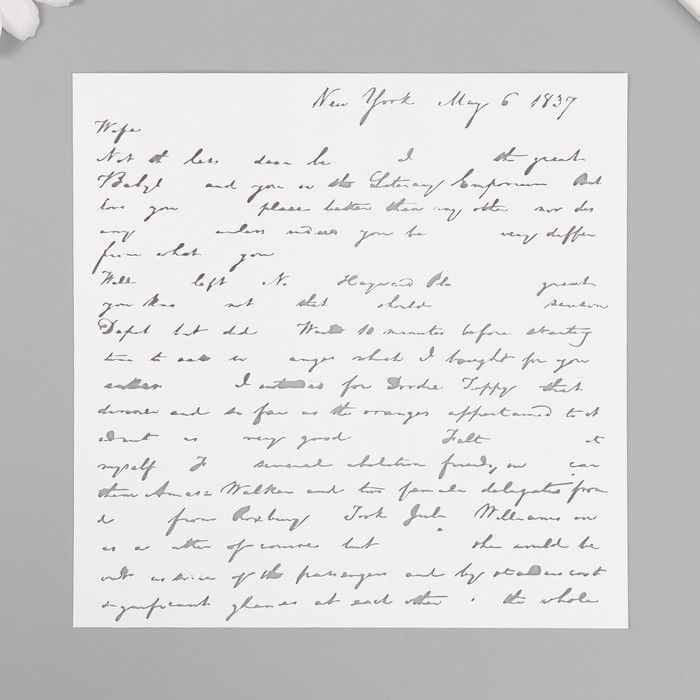 New York May 6 1837
Wife
Not the less dear be I the great
Babyl and you in the Literary Emporium But
love you place better than any other nor des
any unless indeed you be very differ
from what you
Well left No Hayward Pla great
you kno not that should
Depot but did Wait 10 minutes before starting
time to eat or anges which I bought for you
I for Dordie Toppy that
dinner and so far as the oranges appertained to it
was very good Felt at
myself F several abolition friends, in car
them Amasa Walker and two female delegates from
d from Roxbury Took Julia Williams on
as a tter of course but she would be
of the passengers and by cast
significant glances at each other . the whole